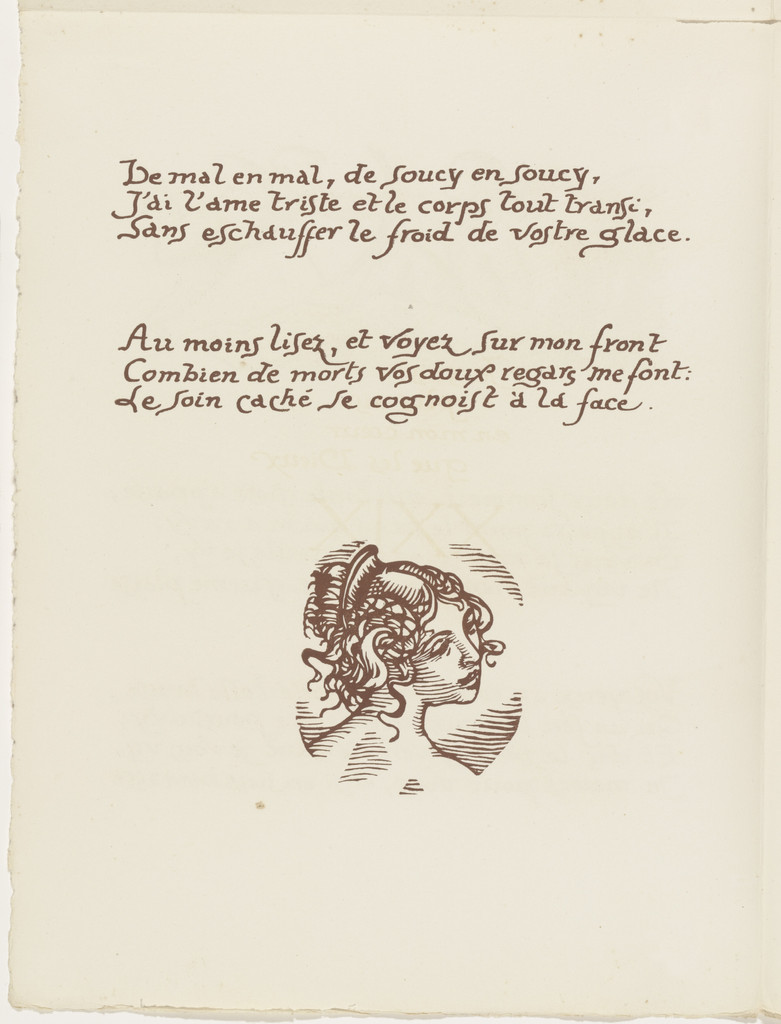 De mal en mal, de soucy en soucy,
J'ai l'ame triste et le corps tout transi,
Sans eschauffer le froid de vostre glace.
Au moins lisez, et voyez sur mon front
Combien de morts vos doux regars me font:
Le soin caché se cognoist à la face.
XXIX